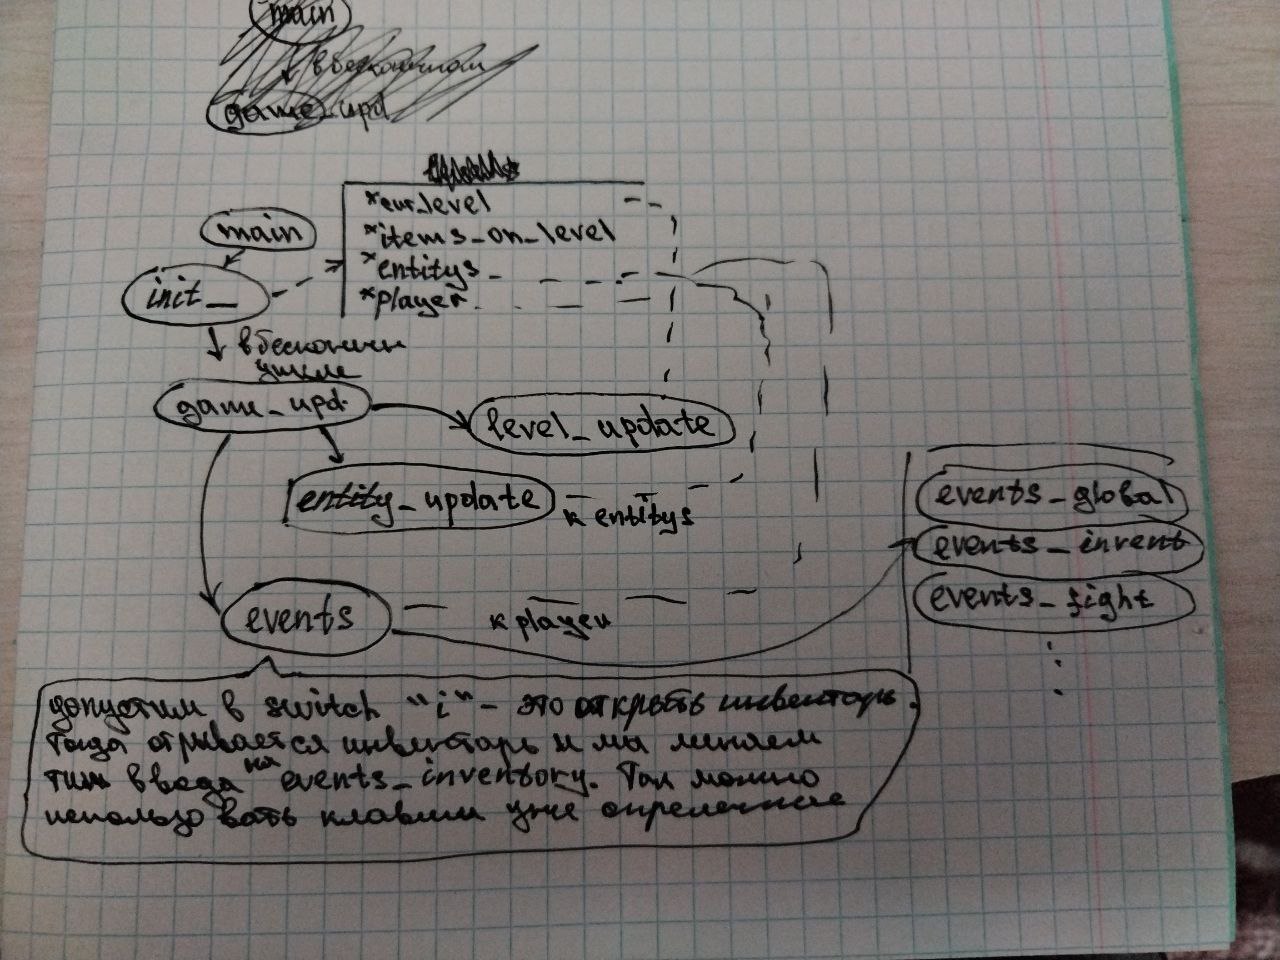 main
в бесконечном
game_upd
*cur_level
*items_on_level
*entitys
*player
main
init_
в бесконечн
цикле
game_upd.
level_update
entity_update
к entitys
events
к player
events_global
events_invent
events_fight
допустим в switch "i" - это открыть инвентарь.
Тогда отрывается инвентарь и мы меняем
тип ввода на events_inventory. Так можно
использовать клавиши уже определенные